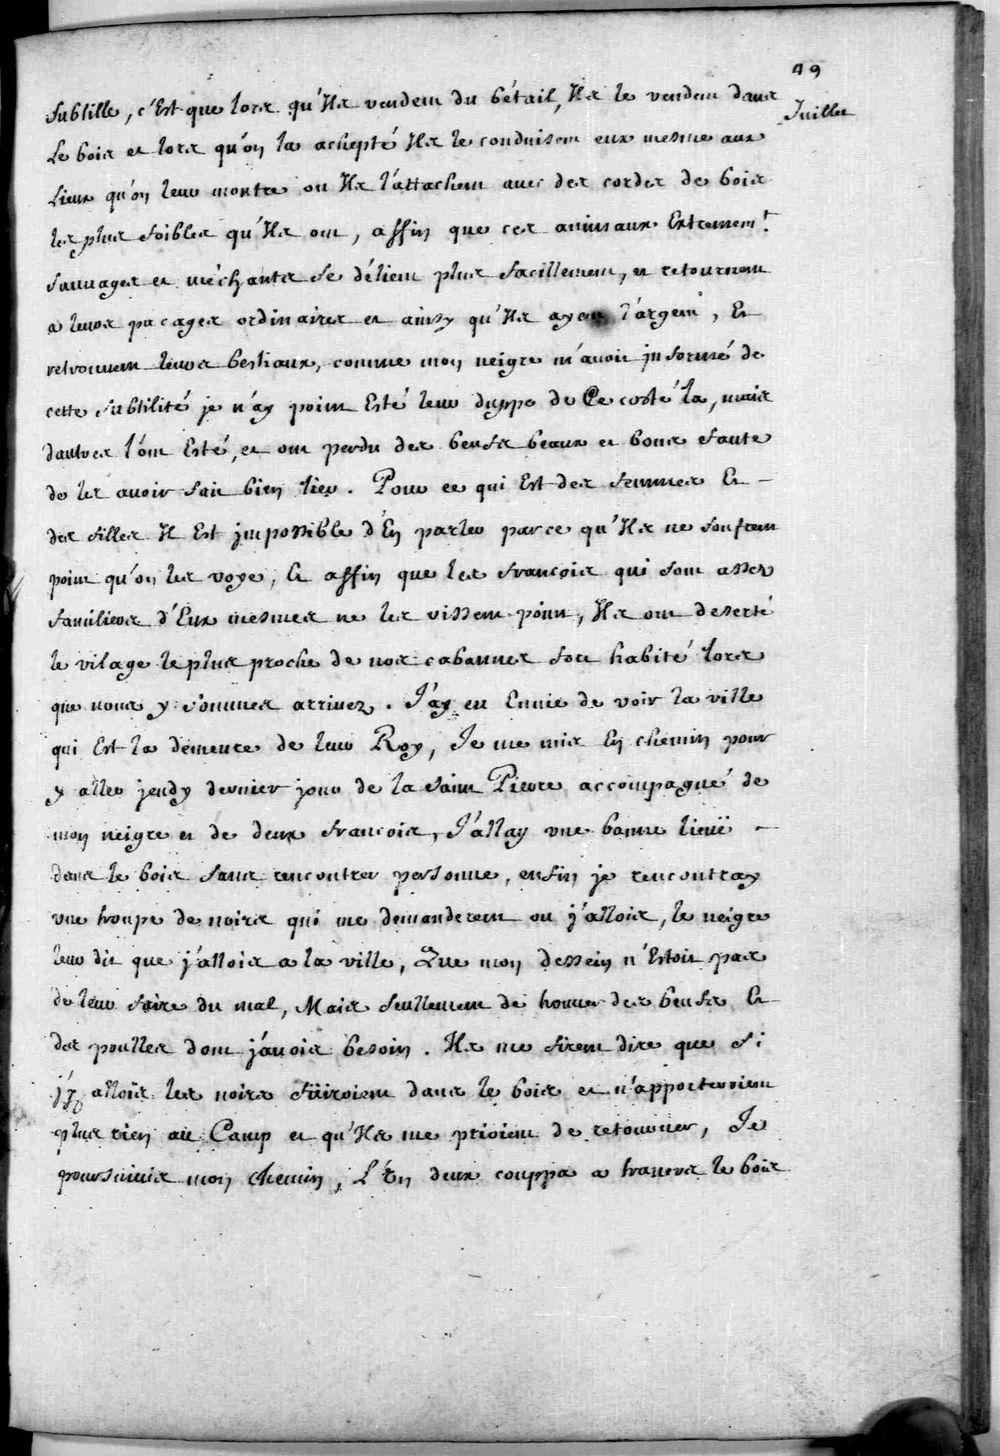 49
Juillet
subtille, c'Est que lors qu'Ils vendent du bétail, Ils le vendent dans
Le bois et lors qu'on la achepté Ils le conduisent eux mesme aux
Lieux qu'on leur montre ou Ils l'attachent avec des cordes de bois
les plus foibles qu'Ils ont, affin que ces animaux Extremem.t
sauvages et méchants se délient plus facillement, et retournent
a leurs pacages ordinaires et ainsy qu'Ils ayent l'argent, Et
retrouvent leurs bestiaux, comme mon neigre m'avoit informé de
cette subtilité je n'ay point Esté leur duppe de Ce costé la, mais
dautres l'ont Esté, et ont perdu des beufs beaux et bons faute
de les avoir fait bien lier. Pour ce qui Est des femmes Et
des filles Il Est impossible d'En parler parce qu'Ils ne soufrent
point qu'on les voye, Et affin que les francois qui sont assez
familiers d'Eux mesmes ne les vissent point, Ils ont deserté
le vilage le plus proche de nos cabannes fort habité lors
que nous y sommes arrivez. J'ay eu Envie de voir la ville
qui Est la demeure de leur Roy, Je me mis En chemin pour
y aller jeudy dernier jour de la saint Pierre accompagné de
mon neigre et de deux francois, J'allay une bonne lieuë
dans le bois sans rencontrer personne, enfin je rencontray
une troupe de noirs qui me demanderent ou j'allois, le neigre
leur dit que j'allois a la ville, Que mon dessein n'Estoit pas
de leur faire du mal, Mais seullement de trouver des beufs Et
des poulles dont j'avois besoin. Ils me firent dire que si
j'y allois les noirs fuiroient dans le bois et n'apporteroient
plus rien au Camp et qu'Ils me prioient de retourner, Je
poursuivis mon chemin, L'Un deux couppa a travers le bois